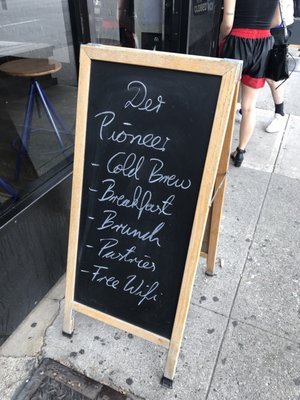 Der
Pioneer
- Cold Brew
- Breakfast
- Brunch
- Pastries
- Free Wifi